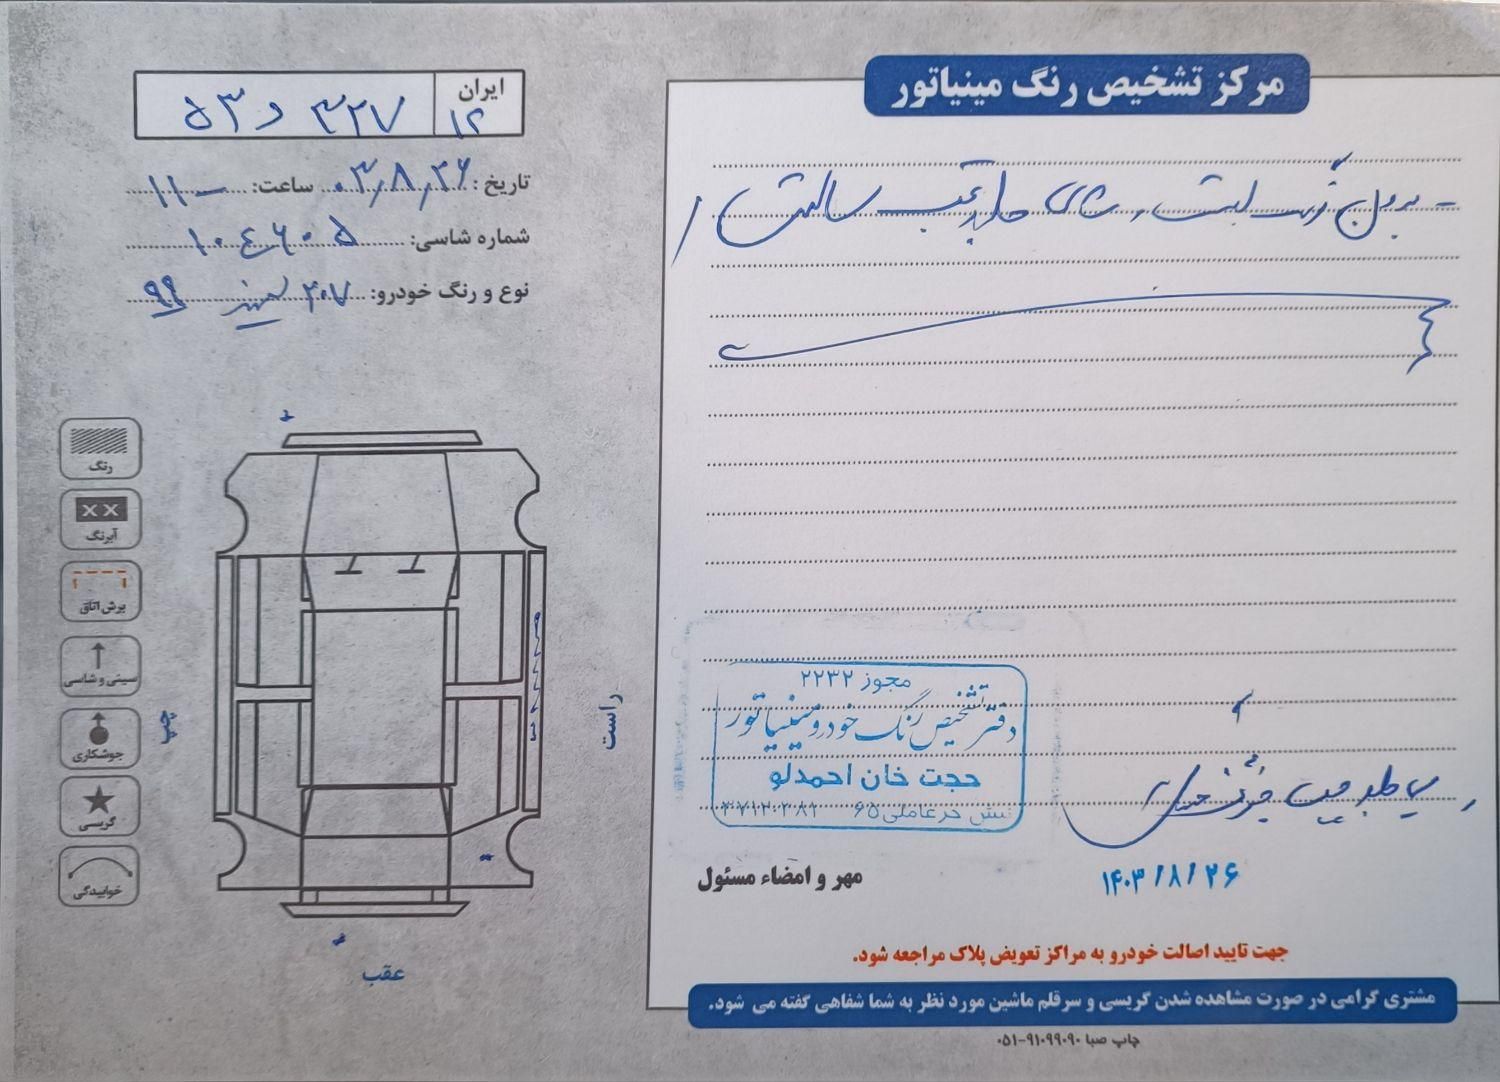 مرکز تشخیص رنگ مینیاتور
ایران
۱۲
۵۳ د ۳۲۷
تاریخ: ۰۳/۸/۲۶ ساعت: ۱۱
شماره شاسی: ۱۰۴۶۰۵
نوع و رنگ خودرو: ۲۰۷ سفید ۹۹
رنگ
آبرنگ
برش اتاق
سینی و شاسی
جوشکاری
گریسی
خوابیدگی
چپ
راست
عقب
جلو عقب سالم
مجوز ۲۲۳۲
دفتر تشخیص رنگ خودرو مینیاتور
حجت خان احمدلو
نبش حرعاملی ۶۵ ۳۷۱۲۰۲۸۱
۱۴۰۳/۸/۲۶
مهر و امضاء مسئول
جهت تایید اصالت خودرو به مراکز تعویض پلاک مراجعه شود.
مشتری گرامی در صورت مشاهده شدن گریسی و سرقلم ماشین مورد نظر به شما شفاهی گفته می شود.
چاپ صبا ۹۱۰۹۹۰۹۰-۰۵۱